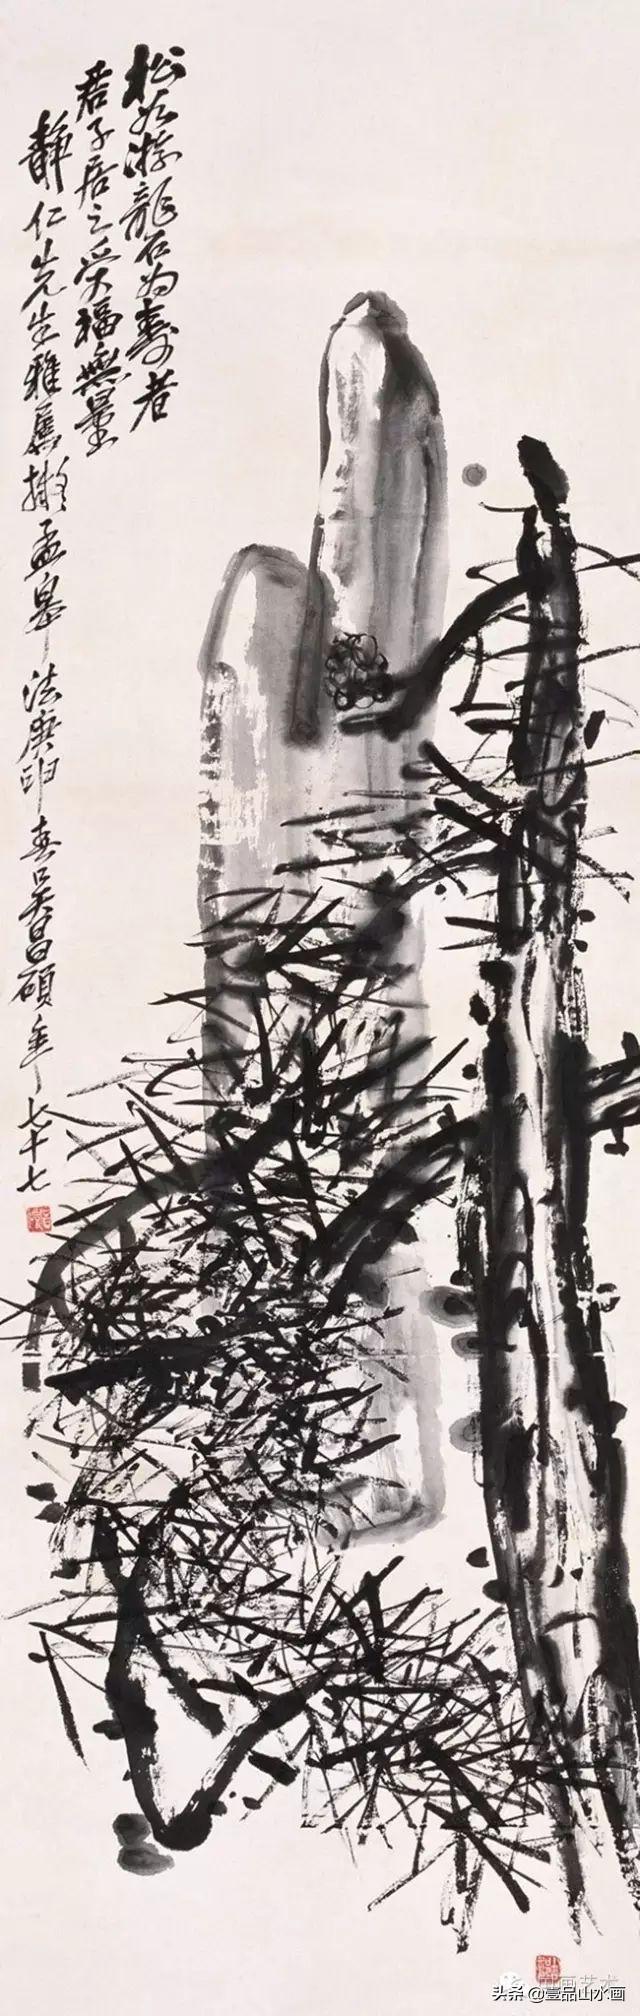 松如游龍石为壽者
君子居之受福無量
靜仁先生雅屬擬孟皋法庚申春吳昌碩年七十七
头条@壹品山水画